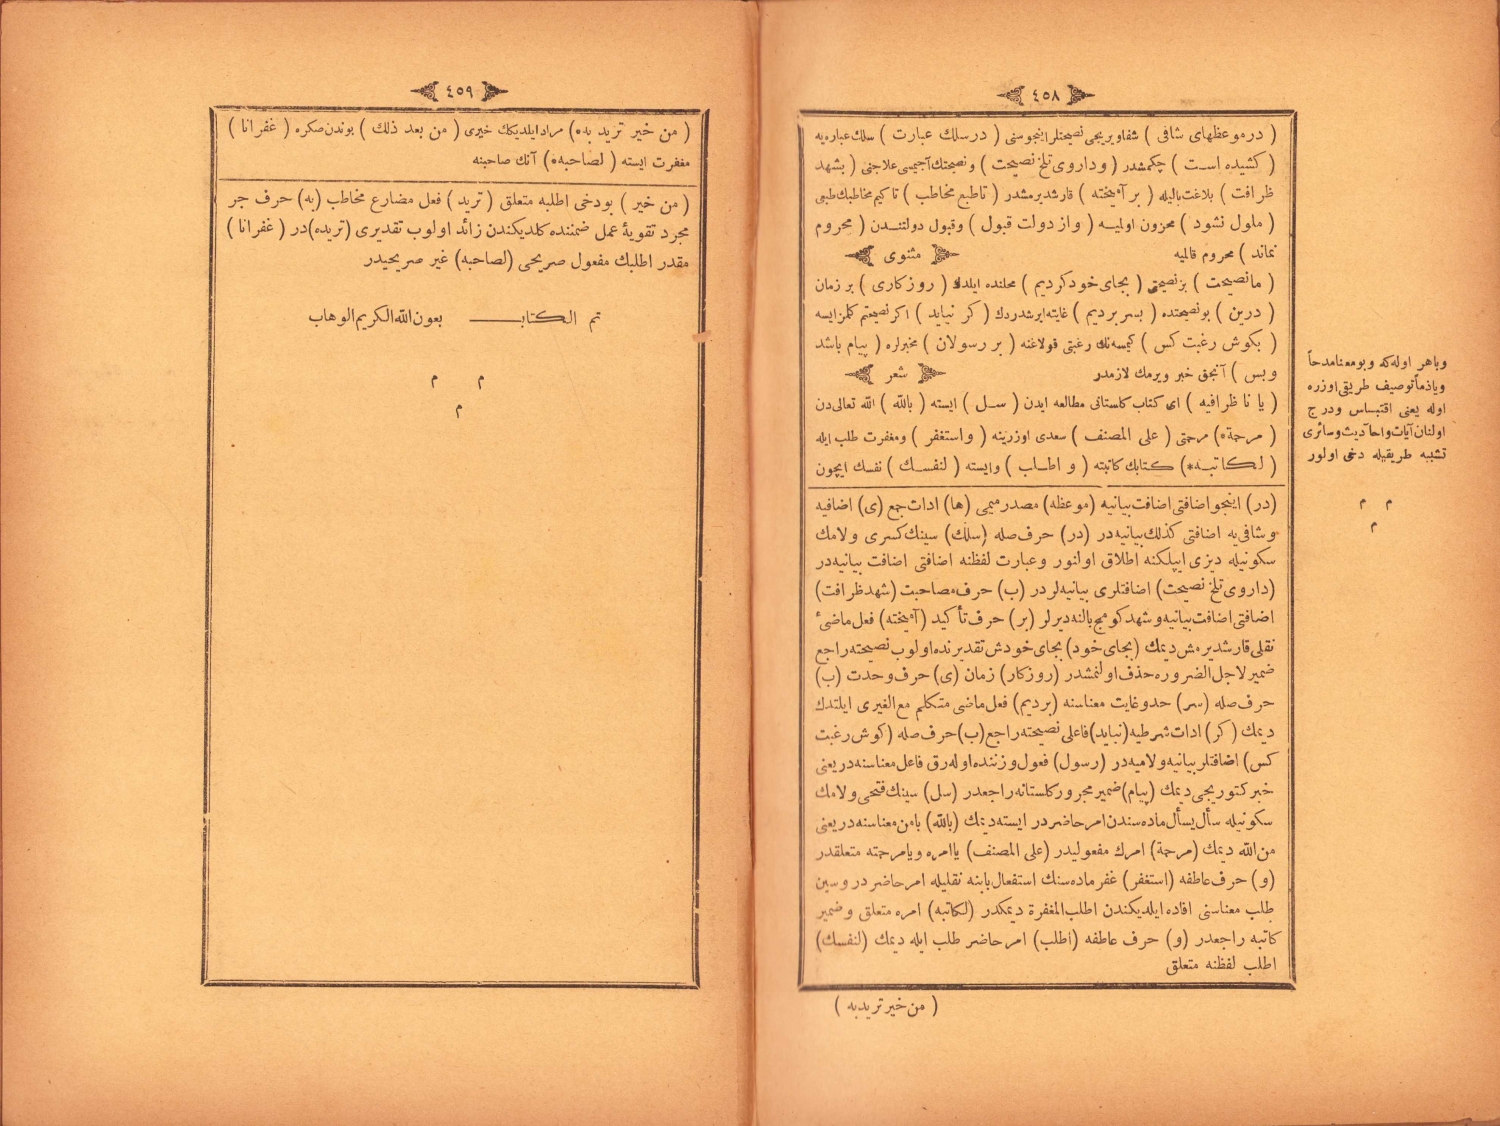 ٤٥٨
( درموعظهای شافی ) شفاویریجی نصیحتلر اینجوسنی ( درسلك عبارت ) سلك عباره یه
( كشیده است ) چكمشدر ( وداروی تلخ نصیحت ) ونصیحتك آجیسی علاجنی ( بشهد
ظرافت ) بلاغت بالیله ( برآمیخته ) قارشدیرمشدر ( تاطبع مخاطب ) تاكیم مخاطبك طبعی
( ملول نشود ) محزون اولمیه ( واز دولت قبول ) وقبول دولتندن ( محروم
نماند ) محروم قالمیه مثنوی
( مانصیحت ) بز نصیحتی ( بجای خود كردیم ) محلنده ایلدك ( روزكاری ) بر زمان
( درین ) بونصیحتده ( بسر بردیم ) غایته ایرشدردك ( كر نیاید ) اكر نصیحتم كلمز ایسه
( بكوش رغبت كس ) كیمسه نك رغبتی قولاغنه ( بر رسولان ) مخبرلره ( پیام باشد
وبس ) آنجق خبر ویرمك لازمدر شعر
( یا ناظرا فیه ) ای كتاب كلستانی مطالعه ایدن ( سل ) ایسته ( بالله ) الله تعالی دن
( مرحمة* ) مرحمتی ( علی المصنف ) سعدی اوزرینه ( واستغفر ) ومغفرت طلب ایله
( لكاتبه* ) كتابك كاتبنه ( واطلب ) وایسته ( لنفسك ) نفسك ایچون
(در) اینجو اضافتی اضافت بیانیه (موعظه) مصدر میمی (ها) ادات جمع (ی) اضافیه
وشافی یه اضافتی كذلك بیانیه در (در) حرف صله (سلك) سینك كسری ولامك
سكونیله دیزی ایپلكنه اطلاق اولنور وعبارت لفظنه اضافتی اضافت بیانیه در
(داروی تلخ نصیحت) اضافتلری بیانیه لردر (ب) حرف مصاحبت (شهد ظرافت)
اضافتی اضافت بیانیه وشهد كومج بالنه دیرلر (بر) حرف تأكید (آمیخته) فعل ماضیٔ
نقلی قارشدیرمش دیمك (بجای خود) بجای خودش تقدیرنده اولوب نصیحته راجع
ضمیر لاجل الضروره حذف اولنمشدر (روزكار) زمان (ی) حرف وحدت (ب)
حرف صله (سر) حد وغایت معناسنه (بردیم) فعل ماضی متكلم مع الغیری ایلتدك
دیمك (كر) ادات شرطیه (نیاید) فاعلی نصیحته راجع (ب) حرف صله (كوش رغبت
كس) اضافتلر بیانیه ولامیه در (رسول) فعول وزننده اوله رق فاعل معناسنه در یعنی
خبر كتوریجی دیمك (پیام) ضمیر مجرور كلستانه راجعدر (سل) سینك فتحی ولامك
سكونیله سأل یسأل ماده سندن امر حاضردر ایسته دیمك (بالله) با من معناسنه در یعنی
من الله دیمك (مرحمة) امرك مفعولیدر (علی المصنف) یا امره ویا مرحمته متعلقدر
(و) حرف عاطفه (استغفر) غفر ماده سنك استفعال بابنه نقلیله امر حاضردر وسین
طلب معناسنی افاده ایلدیكندن اطلب المغفرة دیمكدر (لكاتبه) امره متعلق وضمیر
كاتبه راجعدر (و) حرف عاطفه (اطلب) امر حاضر طلب ایله دیمك (لنفسك)
اطلب لفظنه متعلق
( من خیر ترید به )
وباهر اوله كه وبو معنا مدحاً
ویا ذماً توصیف طریقی اوزره
اوله یعنی اقتباس ودرج
اولنان آیات واحادیث وسائری
تشبیه طریقیله دخی اولور
م م
م
٤٥٩
( من خیر ترید به* ) مراد ایلدیكك خیری ( من بعد ذلك ) بوندن صكره ( غفرانا )
مغفرت ایسته ( لصاحبه* ) آنك صاحبنه
( من خیر ) بودخی اطلبه متعلق ( ترید ) فعل مضارع مخاطب (به) حرف جر
مجرد تقویهٔ عمل ضمننده كلدیكندن زائد اولوب تقدیری (تریده) در ( غفرانا )
مقدر اطلبك مفعول صریحی (لصاحبه) غیر صریحیدر
تم الكتاب بعون الله الكریم الوهاب
م م
م